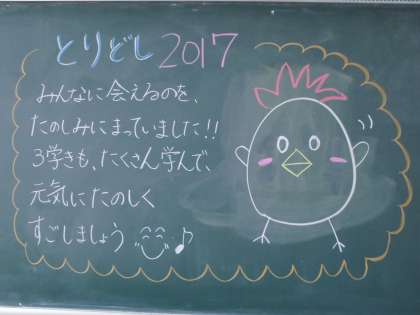 とりどし2017
みんなに会えるのを、
たのしみにまっていました!!
3学きも、たくさん学んで、
元気にたのしく
すごしましょう